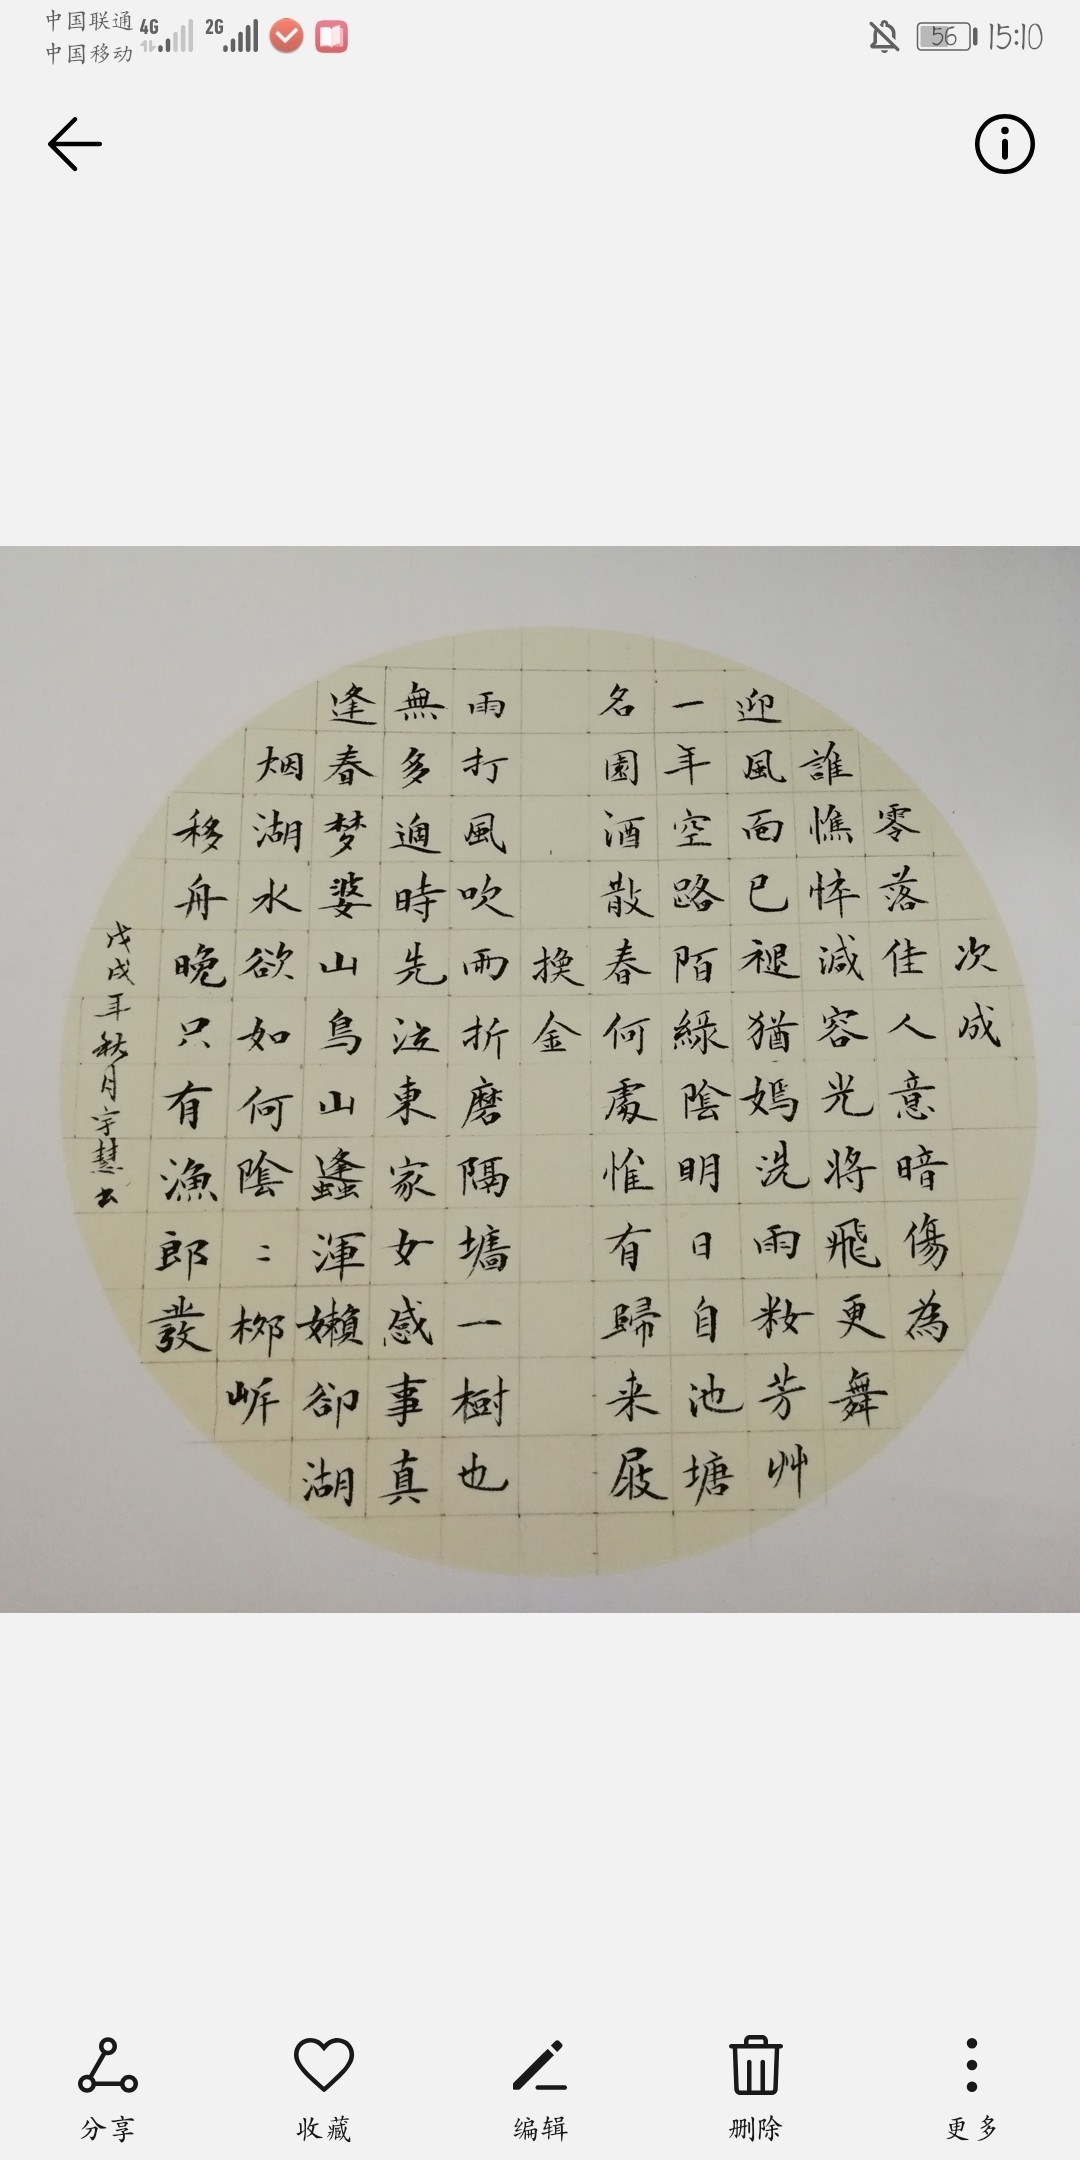 中国联通 4G 2G
中国移动
56 15:10
次成
零落佳人意暗傷為
誰憔悴減容光將飛更舞
迎風面已褪猶嫣洗雨籹芳艸
一年空路陌綠陰明日自池塘
名園酒散春何處惟有歸来屐
換金
雨打風吹雨折磨隔墻一樹也
無多時先泣東家女感事真
逢春梦婆山鳥山蠭渾嬾卻湖
烟湖水欲如何陰二栁
移舟晚只有漁郎發
戊戌年秋月宇慧书
分享 收藏 编辑 删除 更多